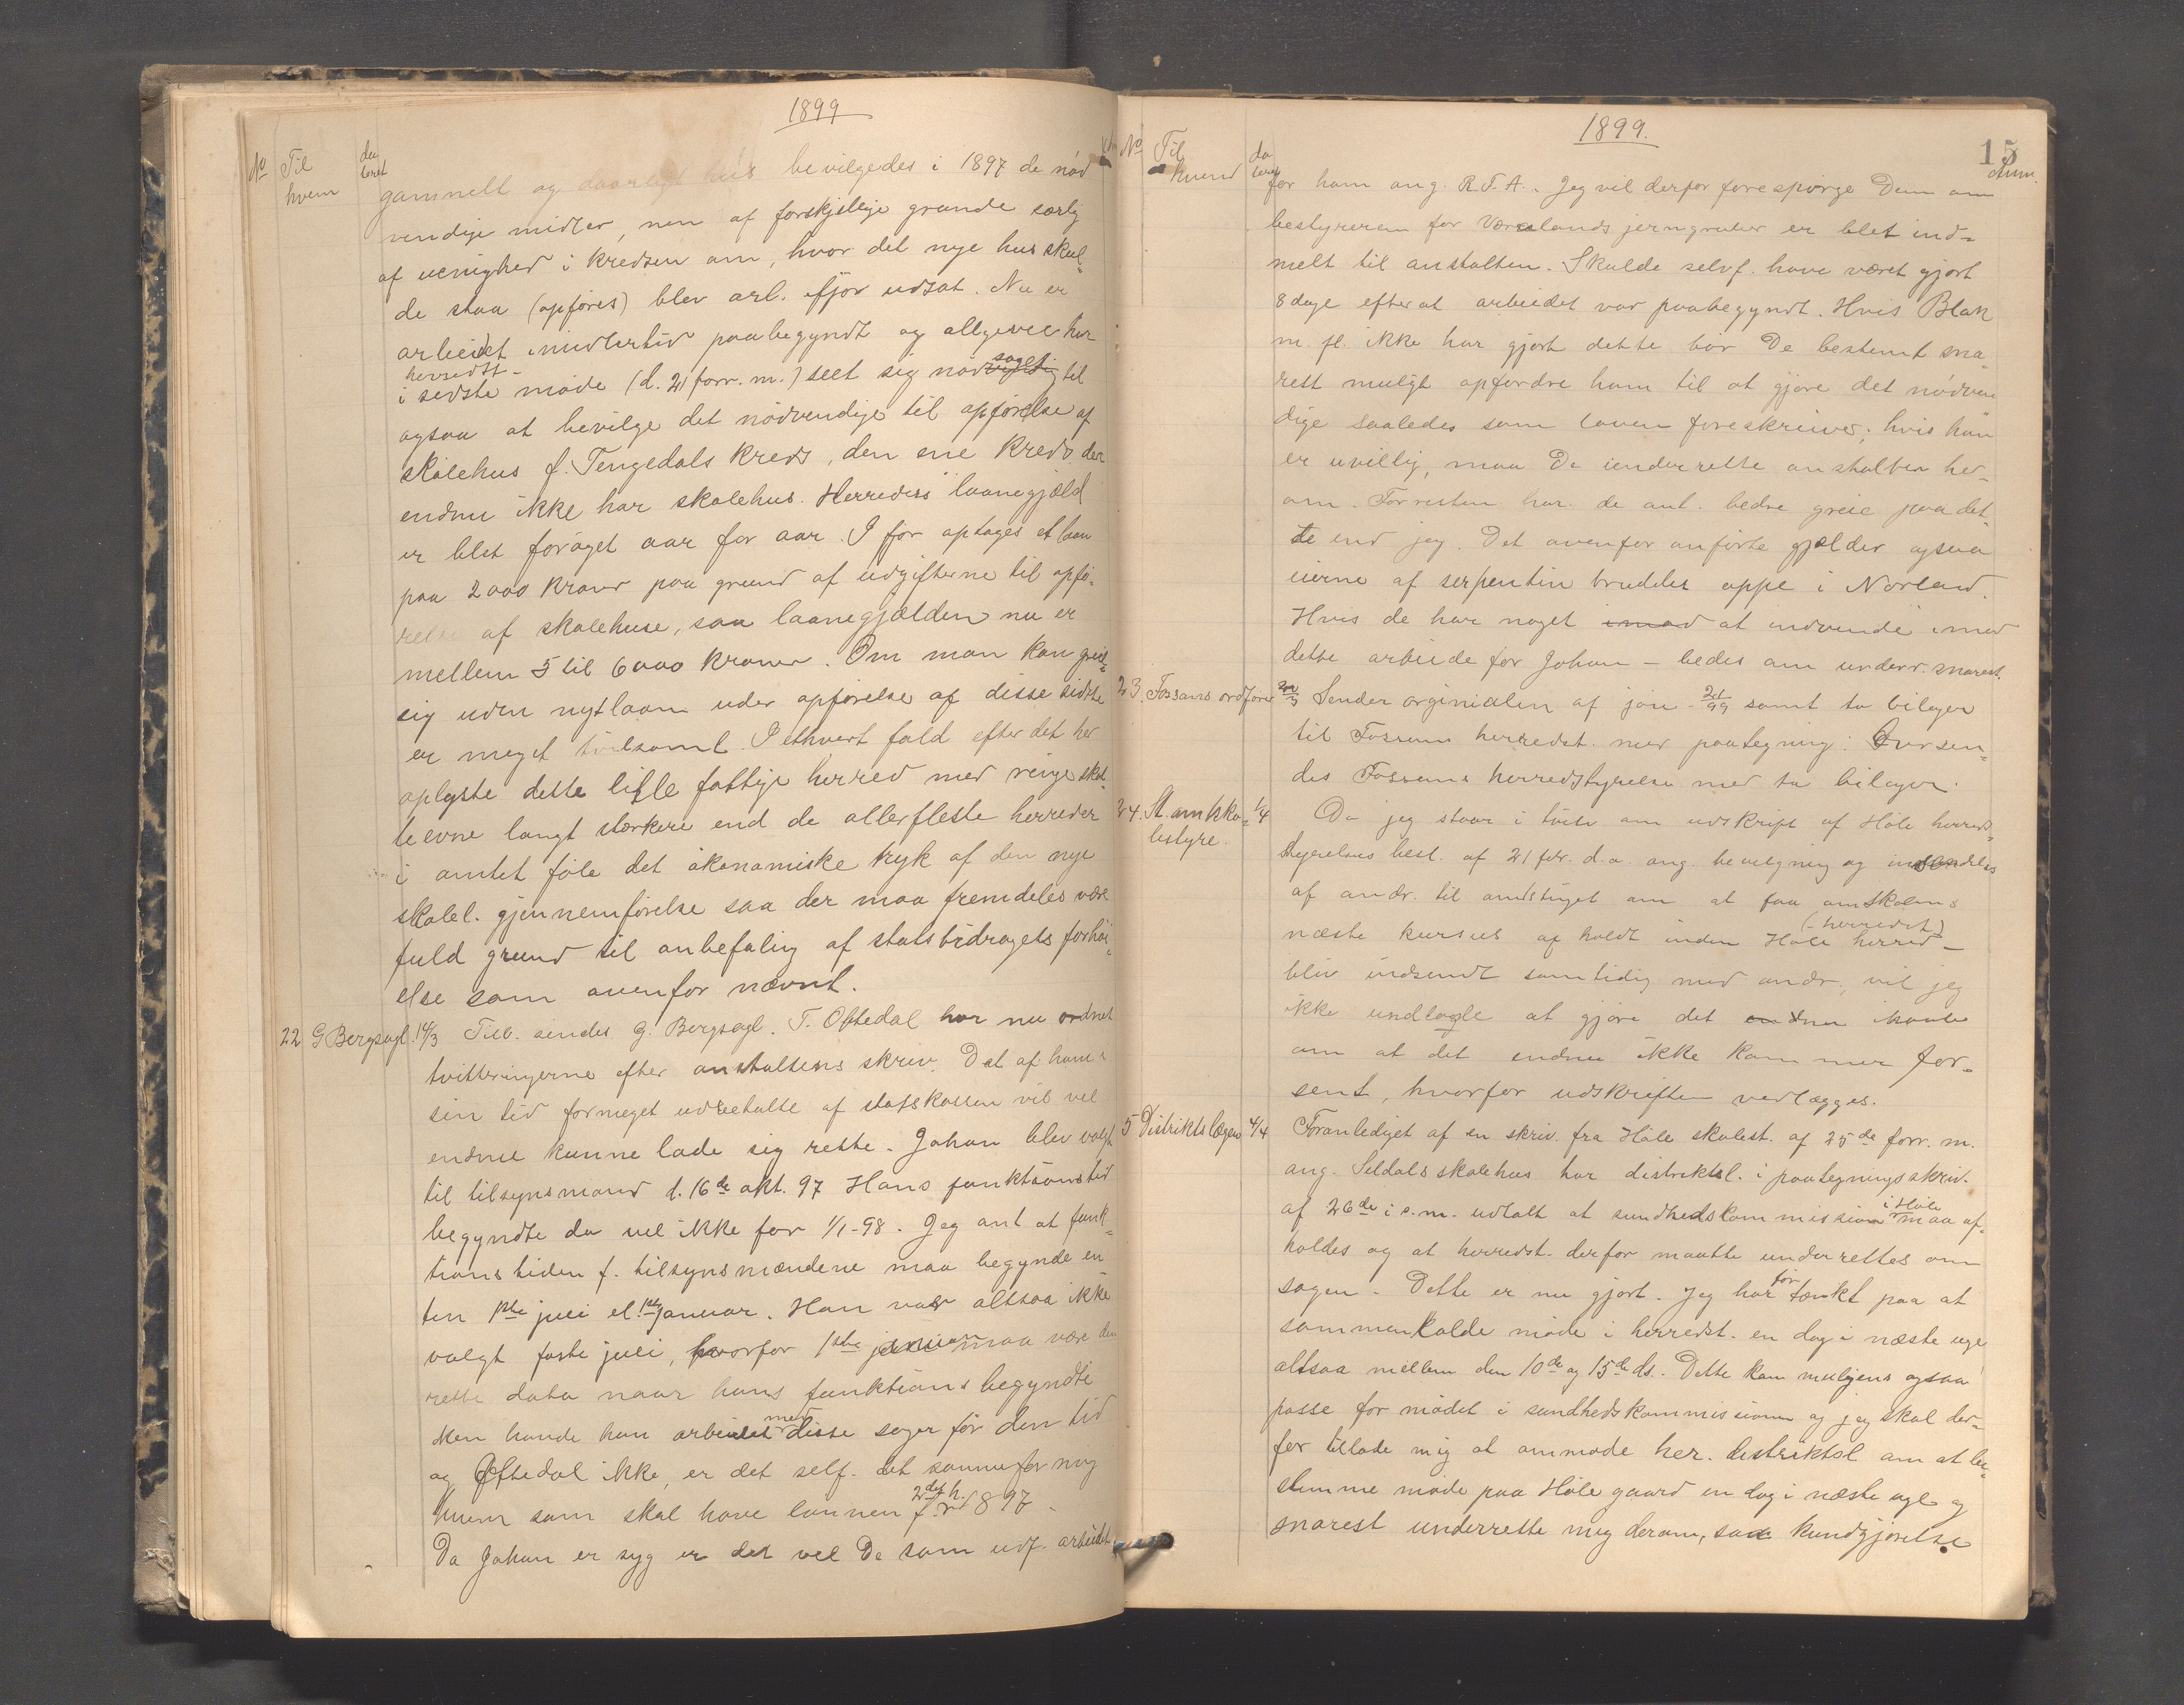 1899
No Til hvem dateret
gammelt og daarligt hus bevilgedes i 1897 de nød
vendige midler, men af forskjellige grunde særlig
af uenighed i kredsen om, hvor det nye hus skul=
de staa (opføres) blev arb. ifjor udsat. Nu er
arbeidet imidlertid paabegyndt og allgevel har
herredst.
i sidste møde (d. 21 forr. m.) seet sig nødsaget til
ogsaa at bevilge det nødvendige til opførelse af
skolehus f. Tengedals kreds, den ene kreds der
endnu ikke har skolehus. Herredets laanegjæld
er blet forøget aar for aar. I fjor optoges et laan
paa 2000 kroner paa grund af udgifterne til opfø=
relse af skolehuse, saa laanegjælden nu er
mellem 5 til 6000 kroner. Om man kan greie
sig uden nyt laan under opførelse af disse sidste
er meget tvilsomt. I ethvert fald efter det her
oplyste dette lille fattige herred med ringe skat=
teevne langt stærkere end de allerfleste herreder
i amtet føle det økonomiske tryk af den nye
skolel. gjennemførelse saa der maa fremdeles være
fuld grund til anbefaling af statsbidragets forhøi=
else som ovenfor nævnt.
22 G Bergsagl. 14/3 Tilb. sendes G. Bergsagl. T. Oftedal har nu ordnet
kvitteringerne efter anstaltens skriv. Det af ham i
sin tid formeget udbetalte af statskassen vil vel
endnu kunne lade sig rette. Johan blev valgt
til tilsynsmand d. 16de okt. 97 Hans funktionstid
begyndte da vel ikke før 1/1-98. Jeg ant. at funk=
tionstiden f. tilsynsmændene maa begynde en
ten 1ste juli el. 1ste januar. Han var altsaa ikke
valgt første juli, hvorfor 1ste januar maa være den
rette dato naar hans funktions begyndte
Men havde han arbeidet med disse sager før den tid
og Oftedal ikke, er det self. det samme for mig
hvem som skal have lønnen f. 2det h. 1897.
Da Johan er syg er det vel De som udf. arbeidet
1899.
15
No Til hvem dateret Anm.
for ham ang. R.F.A. Jeg vil derfor forespørge Dem om
bestyreren for Væraslands jerngruber er blet ind=
melt til anstalten. Skulde selvf. have været gjort
8 dage efterat arbeidet var paabegyndt. Hvis Blak
m. fl. ikke har gjort dette bør De bestemt sna=
rest muligt opfordre ham til at gjøre det nødven
dige saaledes som loven foreskriver; hvis han
er uvillig, maa De underrette anstalten her=
om. Forresten har de ant. bedre greie paa det=
te end jeg. Det ovenfor anførte gjælder ogsaa
eierne af serpentin bruddet oppe i Norland.
Hvis de har noget imod at indvende imod
dette arbeide for Johan – bedes om underr. snarest.
23. Fossans ordfører Sender orginialen af jour. 21/99 samt to bilager
til Fossans herredst. med paategning: Oversen=
des Fossans herredstyrelse med to bilager.
24. St. amtsko=lestyre. 1/4 Da jeg staar i tvivl om udskrift af Høle herreds=
styrelses besl. af 21 febr. d.a. ang. bevilgning og indsendelse
af andr. til amtstinget om at faa amtskolens
næste kursus afholdt inden Høle herred (-herredst)
blev indsendt samtidig med andr., vil jeg
ikke undlade at gjøre det endnu i haab
om at det endnu ikke kommer for=
sent, hvorfor udskriften vedlægges.
5 Distriktslægen 4/4 Foranlediget af en skriv. fra Høle skolest. af 25de forr. m.
ang. Seldals skolehus har distriktsl. i paategningsskriv.
af 26de i s.m. udtalt at sundhedskommission i Høle maa af=
holdes og at herredst. derfor maatte underrettes om
sagen. Dette er nu gjort. Jeg har før tænkt paa at
sammenkalde møde i herredst. en dag i næste uge
altsaa mellem den 10de og 15de ds. Dette kan muligens ogsaa
passe for mødet i sundhedskommissionen og jeg skal der=
for tillade mig at anmode hr. distriktsl om at be=
stemme møde paa Høle gaard en dag i næste uge og
snarest underrette mig derom, saa kundgjørelse